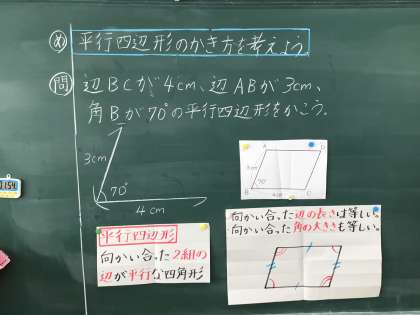 め 平行四辺形のかき方を考えよう。
問 辺BCが4cm、辺ABが3cm、
角Bが70°の平行四辺形をかこう。
3cm
70°
4cm
A
D
3cm
70°
B
4cm
C
平行四辺形
向かい合った2組の
辺が平行な四角形
向かい合った辺の長さは等しい。
向かい合った角の大きさも等しい。